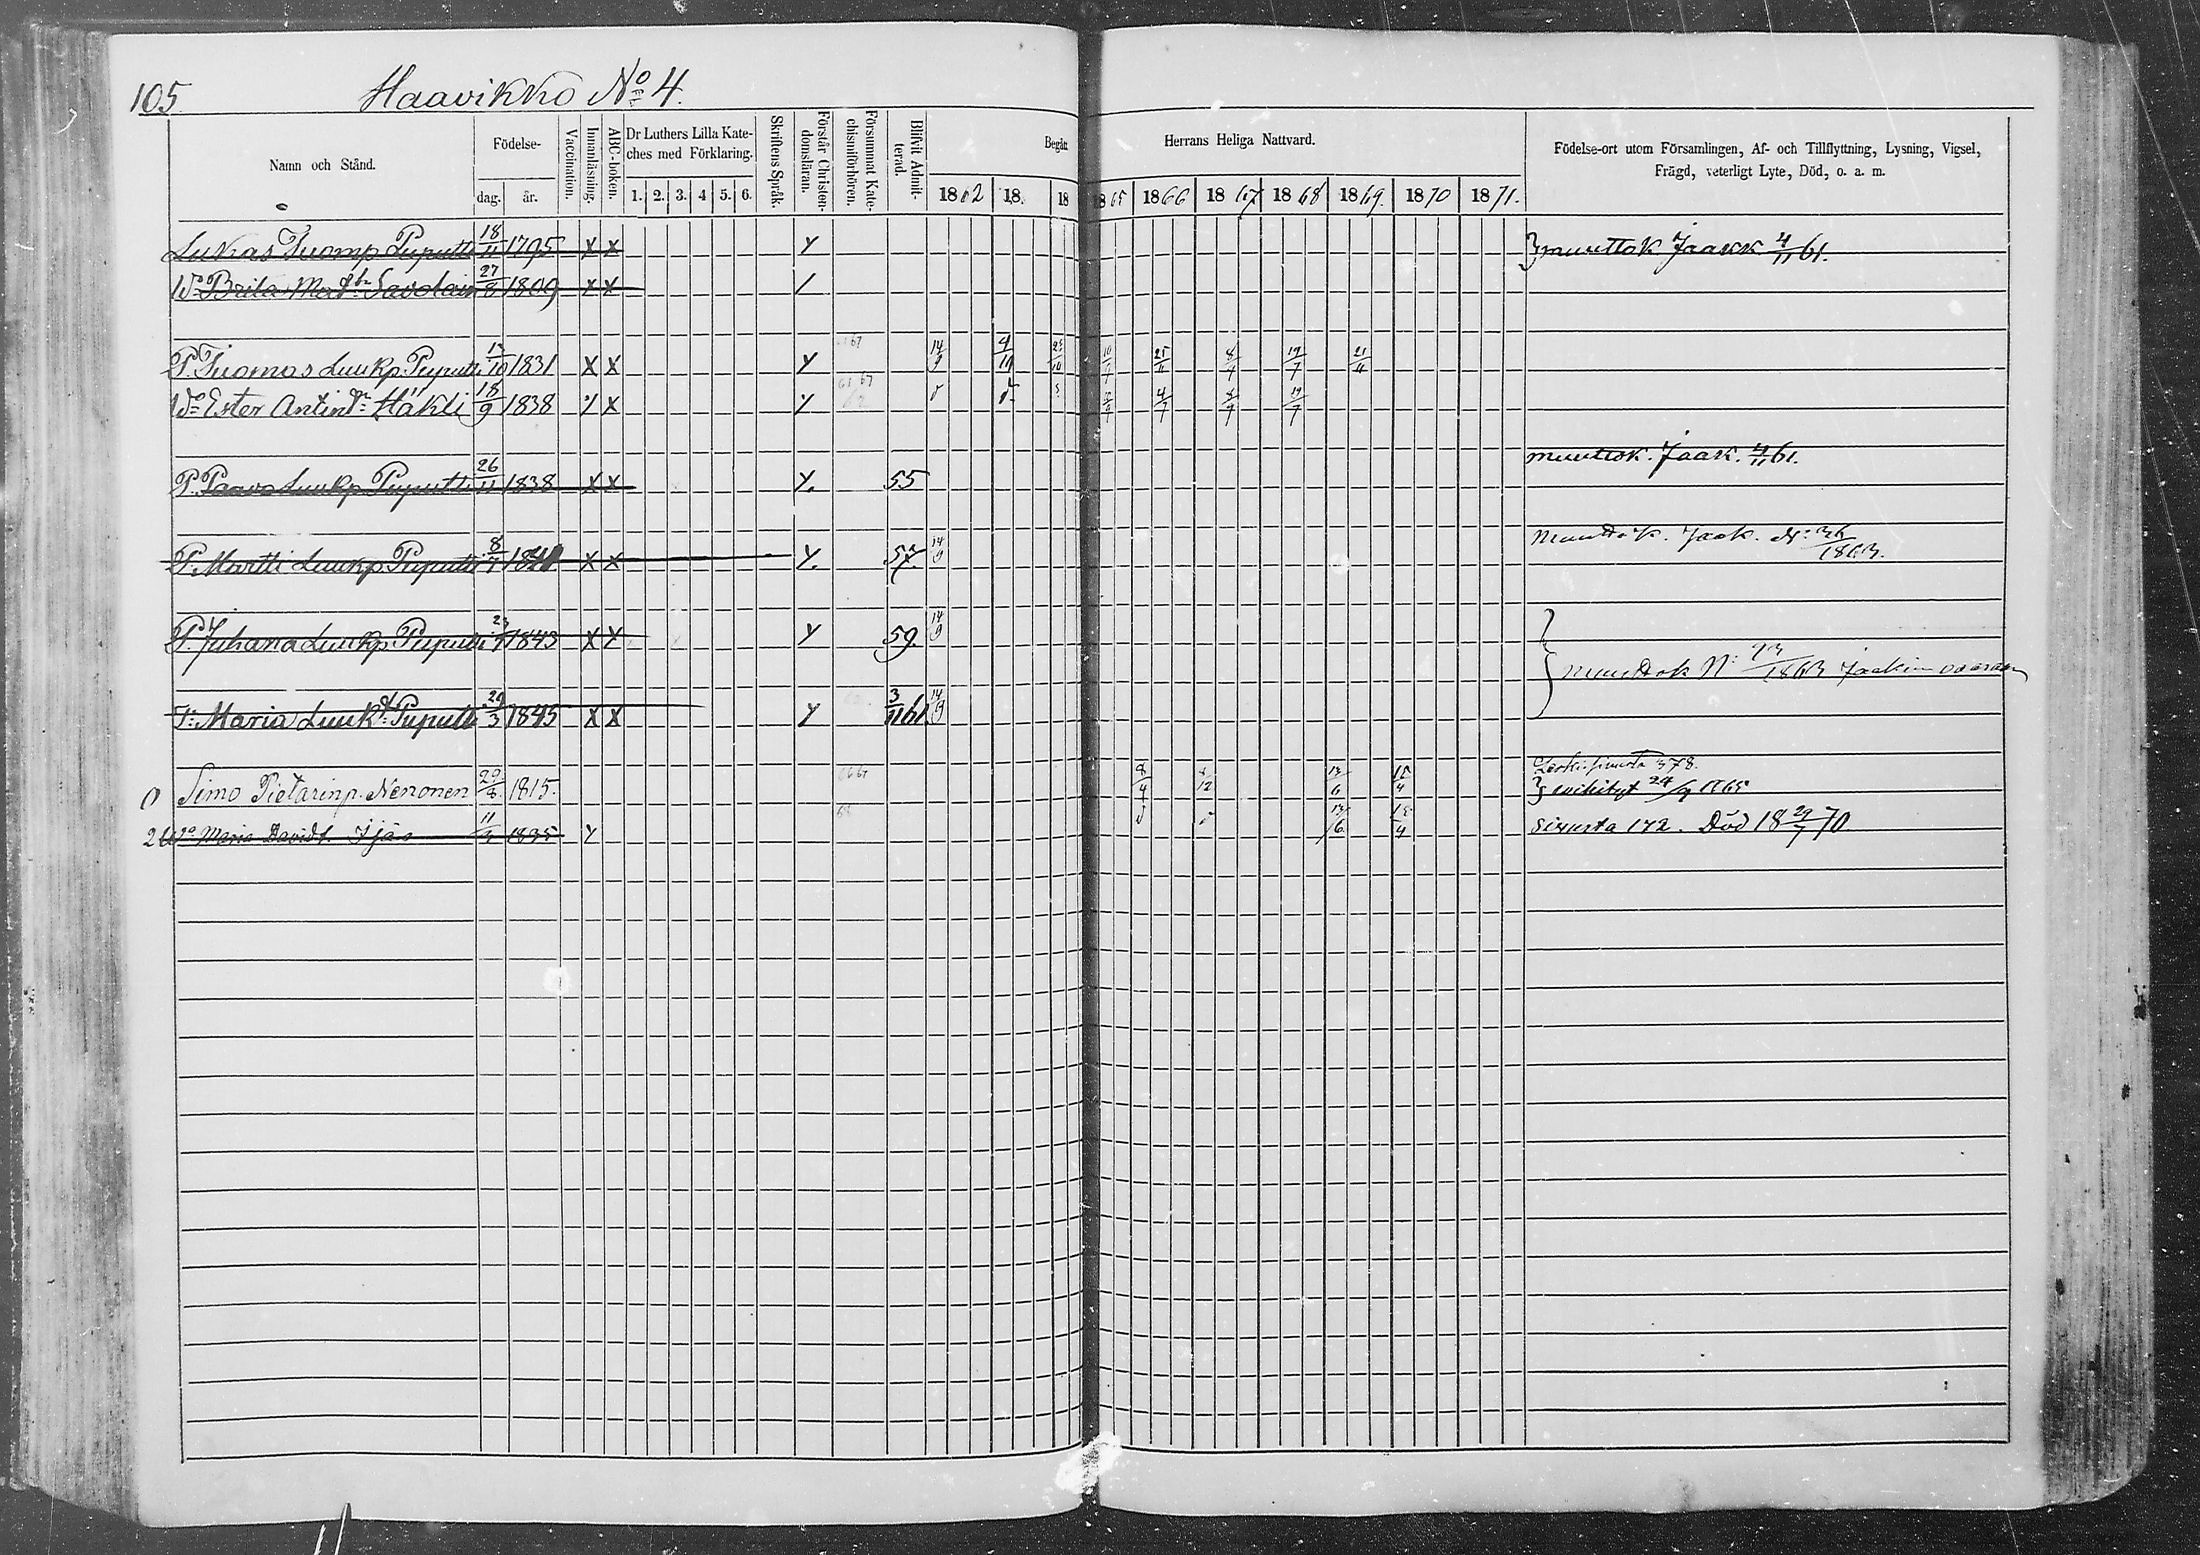 105.
Haavikko No 4.
Namn och Stånd.
Födelse-
dag.
år.
Vaccination.
Innanläsning.
ABC-boken.
Dr Luthers Lilla Kate-
ches med Förklaring.
1. 2. 3. 4 5. 6.
Skriftens Språk.
Förstår Christen-
domsläran.
Försummat Kate-
chismiförhören.
Blifvit Admit-
terad.
Begått Herrans Heliga Nattvard.
1862 18 18 1865 1866 1867 1868 1869. 1870 1871.
Födelse-ort utom Församlingen, Af- och Tillflyttning, Lysning, Vigsel,
Frägd, veterligt Lyte, Död, o. a. m.
Lukas Tuomp Puputti 18/11 1795 X X Y muuttok Jaakk 4/11 61.
Brita Savolain 27/8 1809 X X
P. Tuomas Luukp. Puputti 1831 X X Y 14/9 4/10 25/11 8/7 19/7 21/11
Ester Antind:r Häkli 18/9 1838 X Y 4/7 4/7 19/7
P. Paavo Luukp Puputti 26/11 1838 X X Y. 55 muuttok. Jaak. 4/11 61.
P. Martti Luukp Puputti 8/7 X X Y. 57 14/9 Jaak. 36/1863.
P. Juhana Luukp. Puputti 1843 X X Y 59. 14/9
N: 93/1863 Jaakimvaaraan
Maria Luukd. Puputti 29/3 1845 X X Y 3/11 61. 14/9
Simo Pietarinp. Nenonen 29/8. 1815. 8/4 8/12 13/6 15/4 378.
vihityt 24/9 1865
Maria Davidt. Ijäs 11/3 1835 Y 13/6 15/4 sivusta 172. Död 18 29/7 70